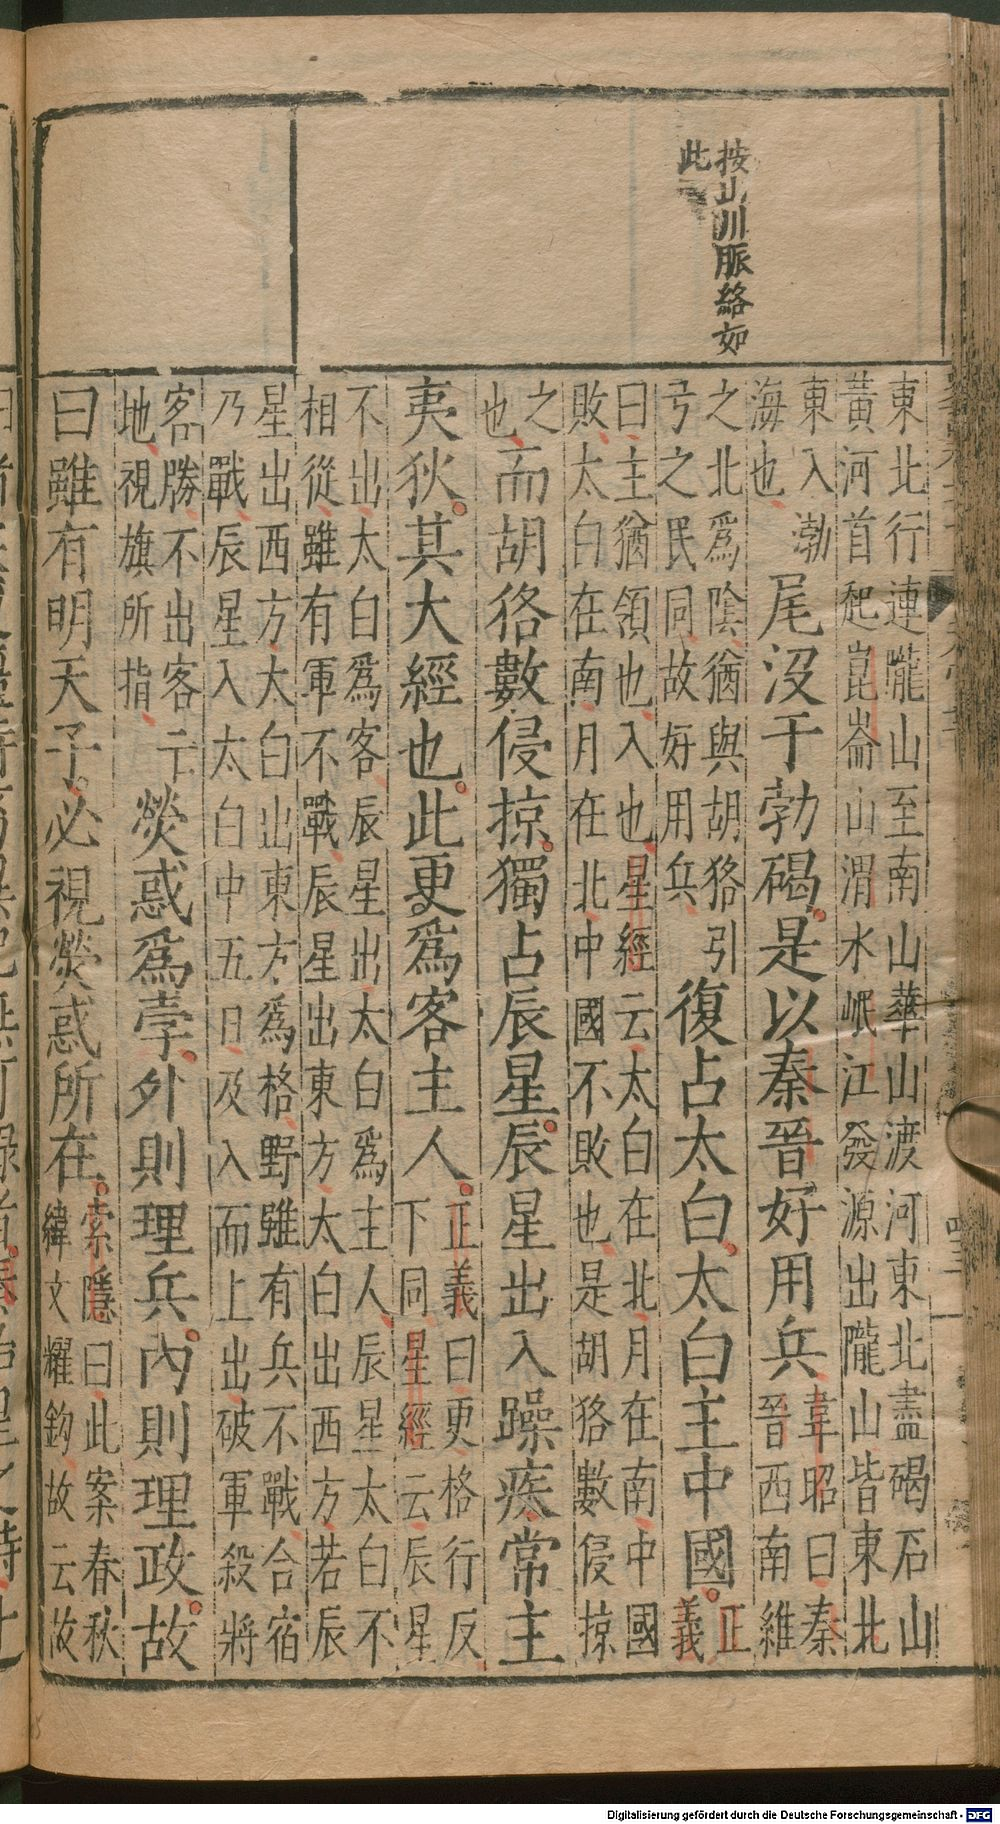 按山川脈絡如
此
東北行連隴山至南山華山渡河東北盡碣石山
黃河首起崑崙山渭水岷江發源出隴山皆東北
東入渤
海也
尾沒于勃碣是以秦晉好用兵
韋昭曰秦
晉西南維
之北爲陰猶與胡狢引
弓之民同故好用兵
復占太白太白主中國
正
義
曰主猶領也入也星經云太白在北月在南中國
敗太白在南月在北中國不敗也是胡狢數侵掠
之
也
而胡狢數侵掠獨占辰星辰星出入躁疾常主
夷狄其大經也此更爲客主人
正義曰更格行反
下同星經云辰星
不出太白爲客辰星出太白爲主人辰星太白不
相從雖有軍不戰辰星出東方太白出西方若辰
星出西方太白出東方爲格野雖有兵不戰合宿
乃戰辰星入太白中五日及入而上出破軍殺將
客勝不出客亡
地視旗所指
熒惑爲孛外則理兵內則理政故
曰雖有明天子必視熒惑所在
索隱曰此案春秋
緯文耀鈎故云故
Digitalisierung gefördert durch die Deutsche Forschungsgemeinschaft - DFG